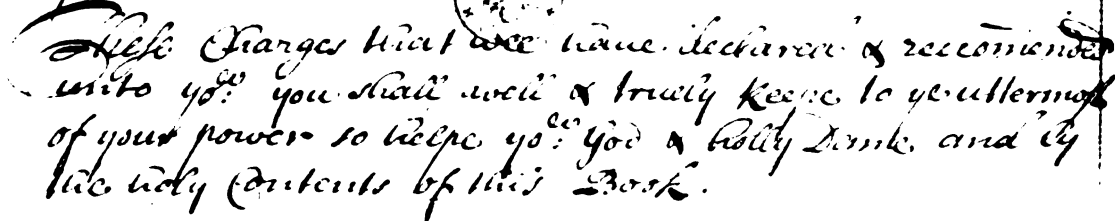 These Charges that wee have declared & reccomended
unto yo:w you shall well & truely keepe to ye uttermost
of your power so helpe yo:w God & holly Dome and by
the holy Contents of this Book.